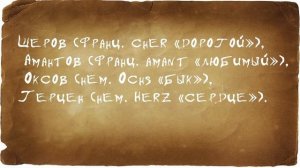 Шеров (франц. cher «дорогой»),
Амантов (франц. amant «любимый»),
Оксов (нем. Ochs «бык»),
Герцен (нем. Herz «сердце»).